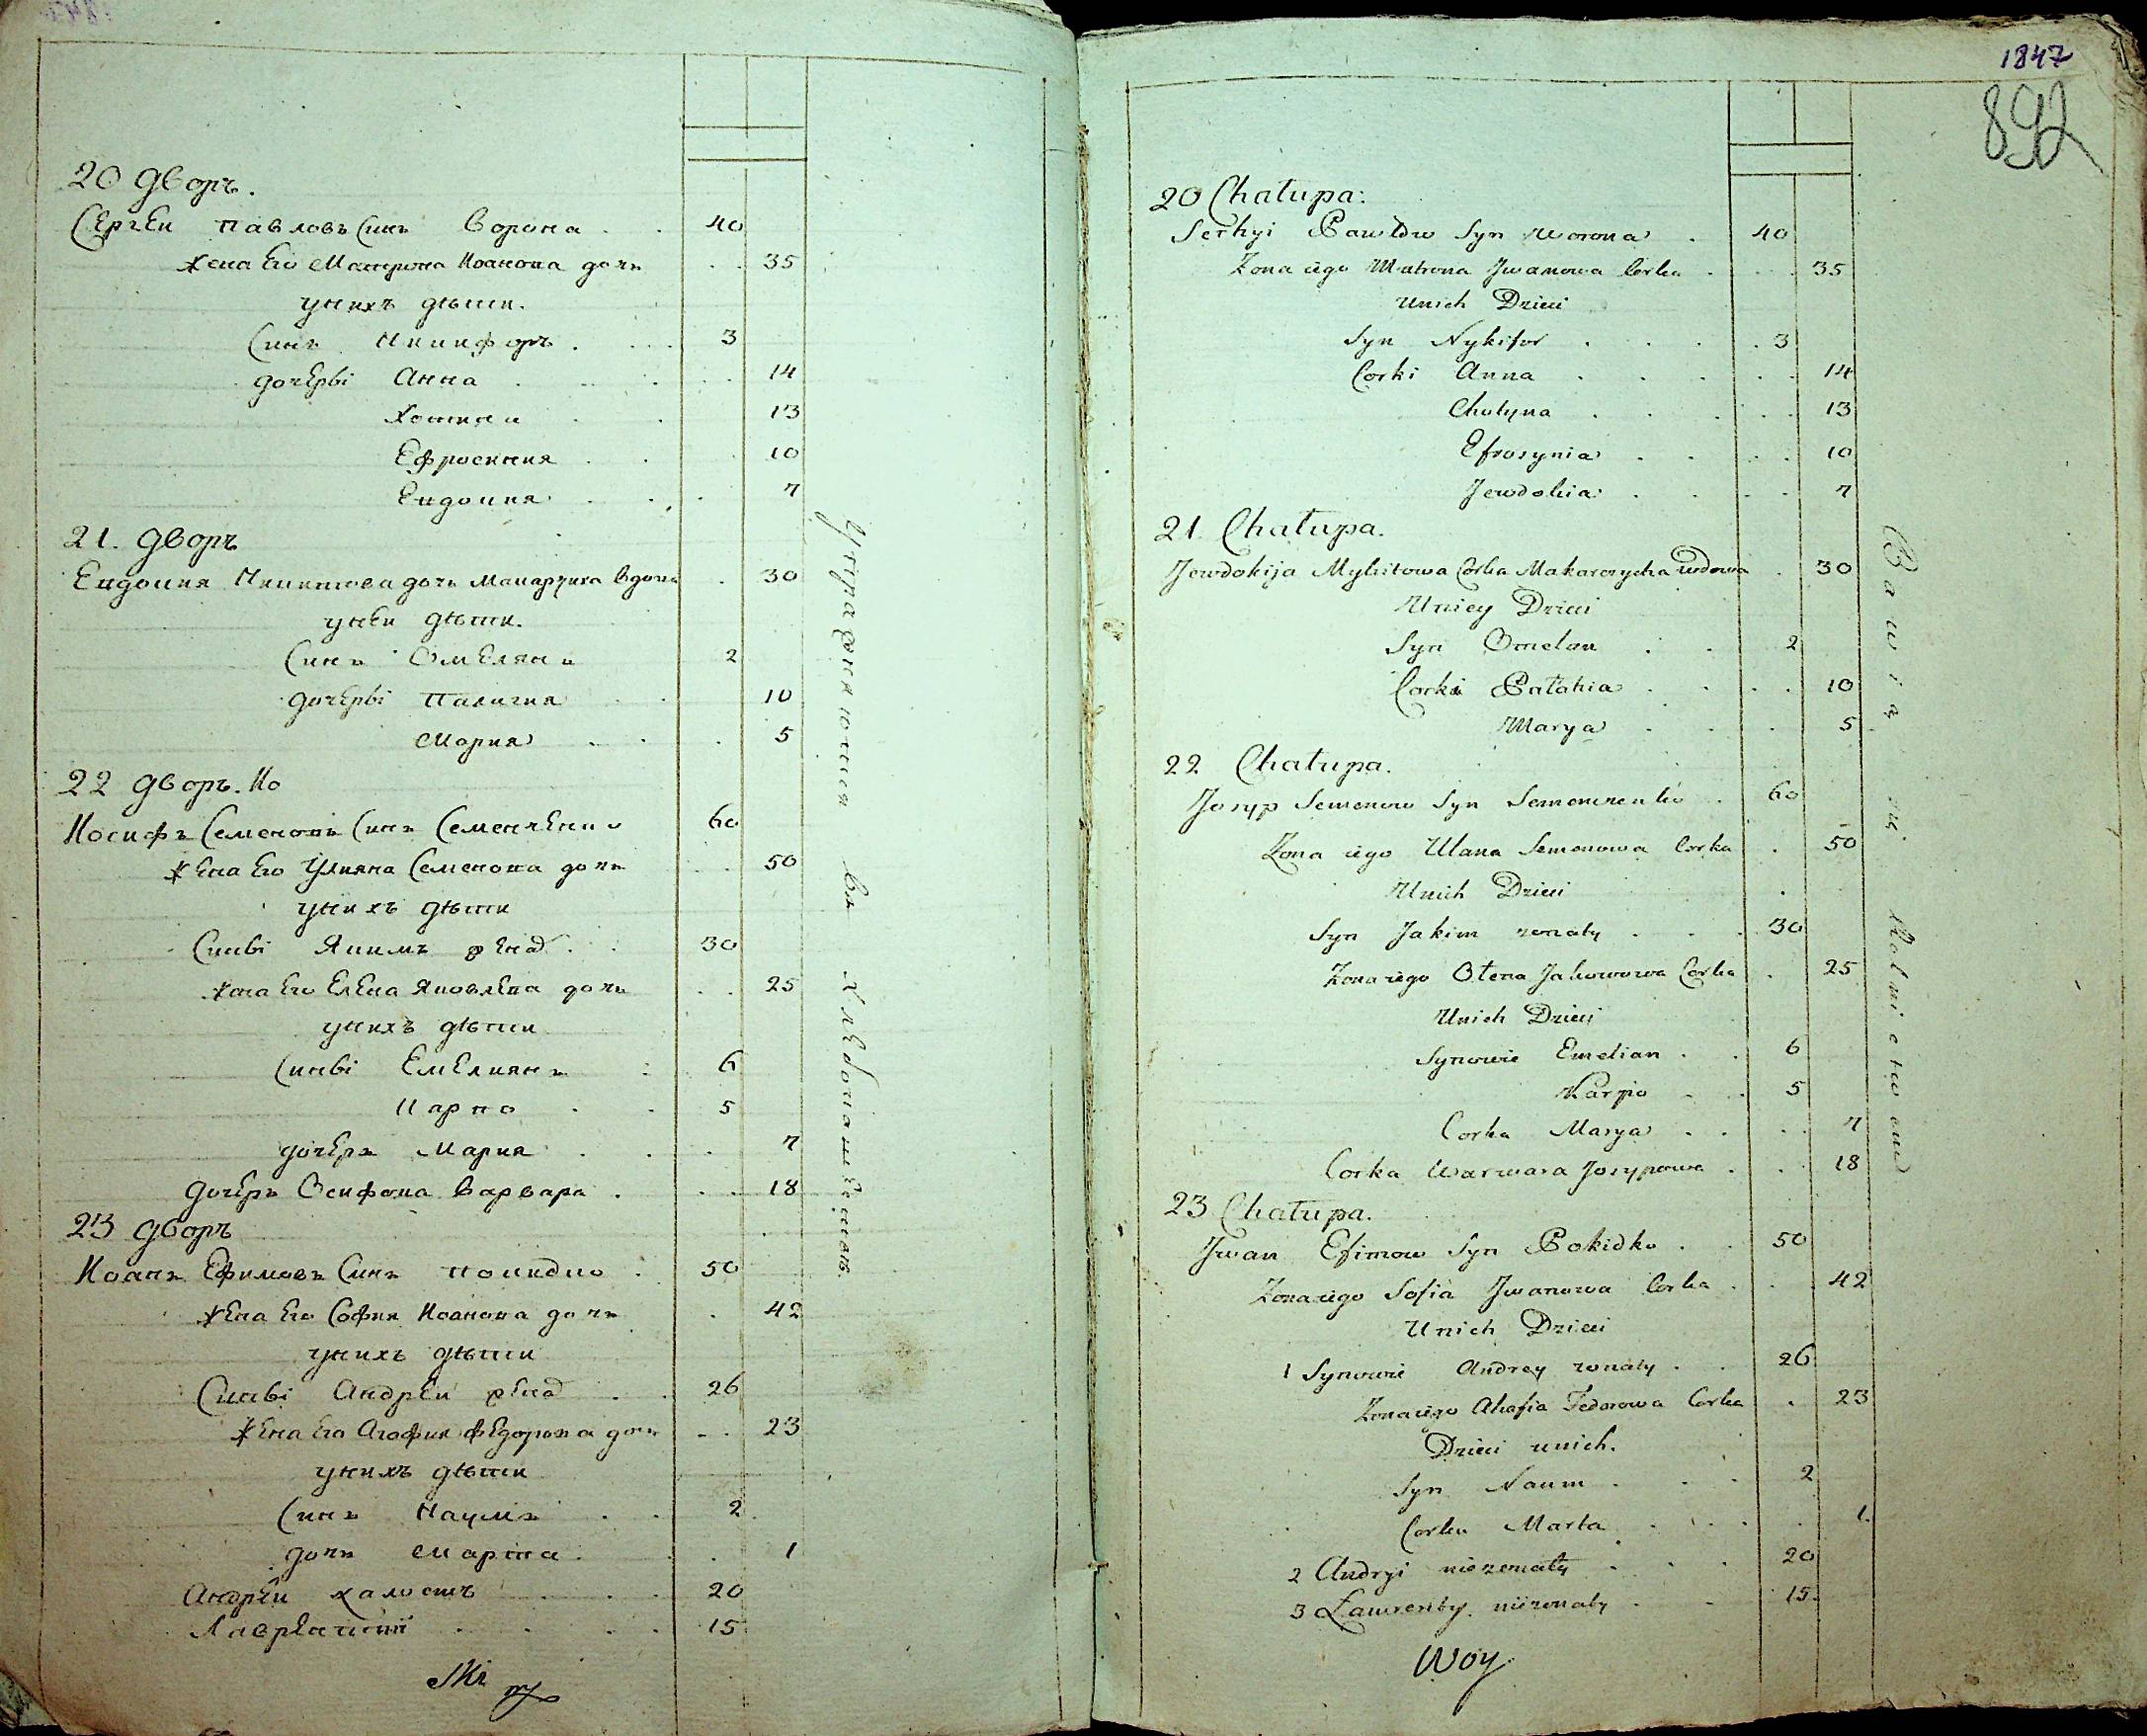 20 дворъ.
Сергеи Павловъ Синъ Ворона . . 40
жена его Матрона Иоанова дочь . . 35
у них дѣти.
Синъ Никифоръ . . . 3
дочерѣ Анна . . . 14
Хотина . . 13
Ефросиния . . . 10
Евдокия . . . 7
21. дворъ
Евдокия Никитова дочь Макарчиха вдова . 30
у неи дѣти.
Синъ Омелянъ 2
дочерѣ Палагия . . 10
Мария . . . 5
22 дворъ. Ио
Иосифъ Семеновъ Синъ Семенченко 60
жена его Улияна Семенова дочь . . 50
у нихъ дѣти
Синвѣ Якимъ женат . . 30
жена его Елена Яковлева дочь . . 25
у нихъ дѣти
Синвѣ Емелиянъ : 6
Карпо . . 5
дочеръ Мария . . . 7
дочеръ Осифова Варвара . . . 18
23 дворъ
Иоанъ Ефимовъ Синъ Покидко . 50
жена его София Иоанова дочь . 42
у нихъ дѣти
Синвѣ Андреи женат . . 26
жена его Агофия Федорова дочь . . 23
у нихъ дѣти
Синъ Наумъ . . 2
дочь Марта . . 1
Андреи халостъ . . . 20
Лаврентий . . . . 15
Упражняются въ хлебопашествѣ.
1847
892
20 Chałupa:
Serhyi Pawłow Syn Worona . 40
Zona iego Matrona Jwanowa Corka . . . 35
Unich Dzieci
Syn Nykifor . . . . 3
Corki Anna . . . . . 14
Chotyna . . . . 13
Efrosynia . . . . 10
Jewdokia . . . . 7
21 Chałupa.
Jewdokija Mykitowa Corka Makarczycha wdowa . 30
Uniey Dzieci
Syn Omelan . . 2
Corki Pałahia . . . . 10
Marya . . . 5
22 Chałupa.
Josyp Semenow Syn Semenczenko . 60
Zona iego Ulana Semenowa Corka . 50
Unich Dzieci
Syn Jakim zonaty . . . 30
Zona iego Ołena Jakowowa Corka . 25
Unich Dzieci
Synowie Emelian . . 6
Karpo . . 5
Corka Marya . . . . 7
Corka Warwara Josypowa . . . 18
23 Chałupa.
Jwan Efimow Syn Pokidko . . 50
Zona iego Sofia Jwanowa Corka . . . 42
Unich Dzieci
1 Synowie Andrey zonaty . . 26
Zona iego Ahafia Fedorowa Corka . 23
Dzieci unich.
Syn Naum . . . 2
Corka Marta . . . . 1.
2 Andryi niezonaty . . . 20
3 Ławrenty niezonaty . . 15.
Woy
Bawią się Rolnictwem